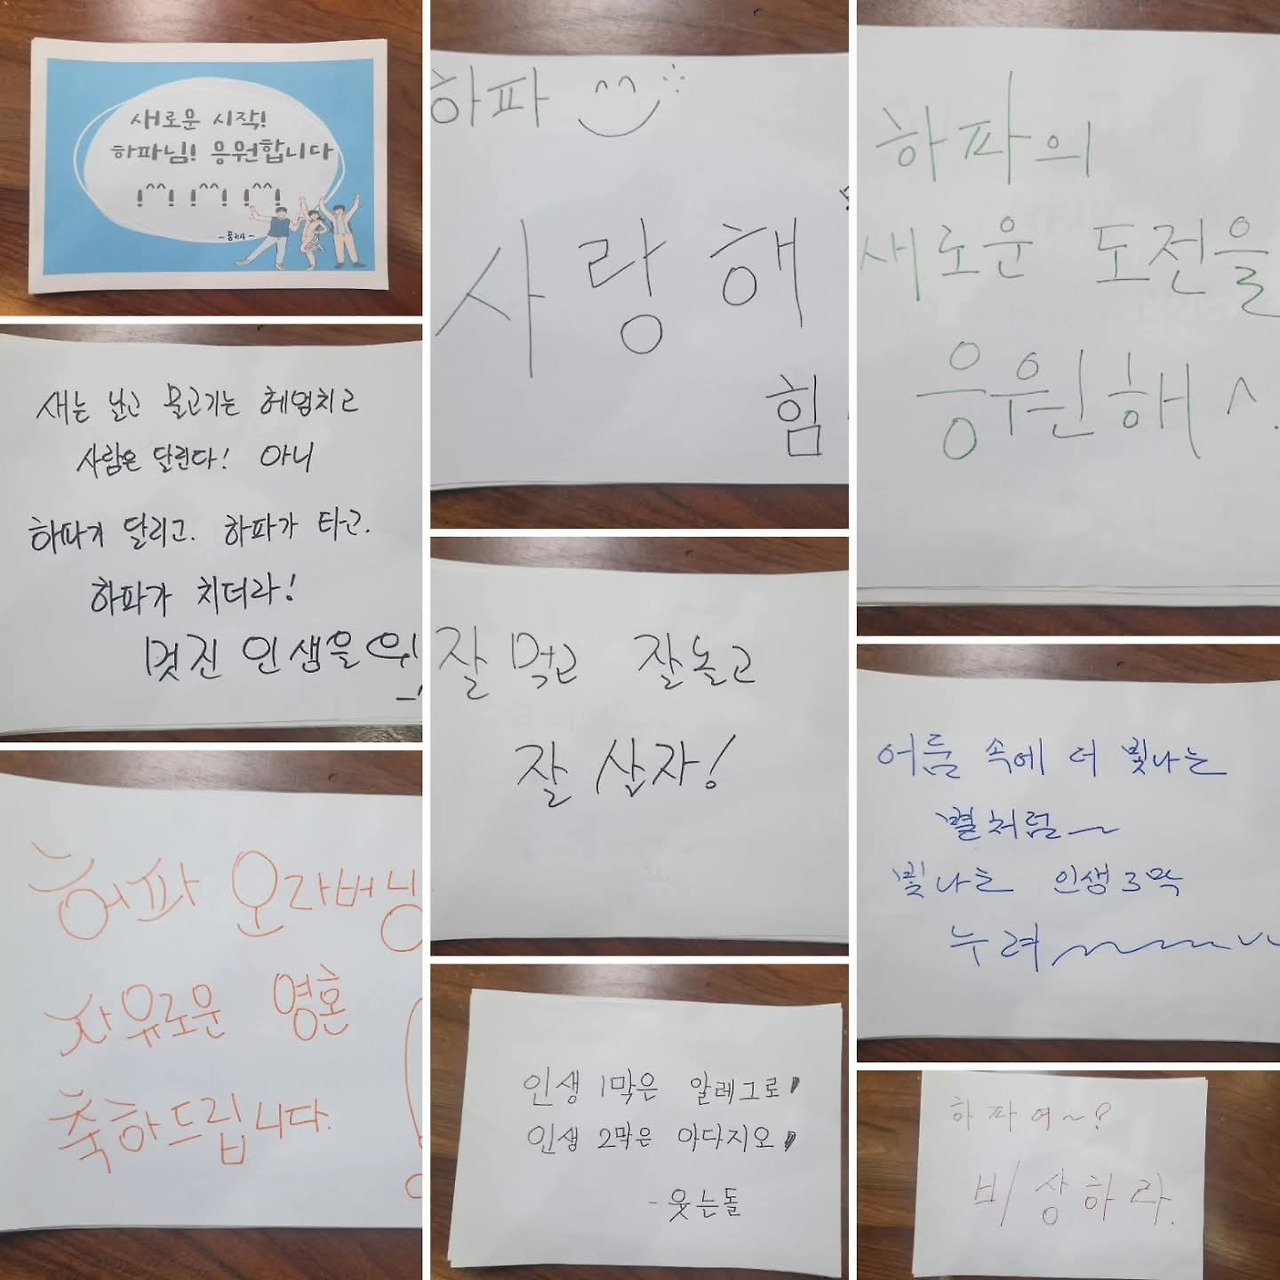 새로운 시작!
하파님! 응원합니다
!^^! !^^! !^^!
새는 날고 물고기는 헤엄치고
사람은 달린다! 아니
하파가 달리고. 하파가 타고.
하파가 치더라!
멋진 인생을
허파 오라버닝
자유로운 영혼
축하드립니다.
하파
사랑해
힘
잘먹고 잘놀고
잘 삽자!
인생 1막은 알레그로!
인생 2막은 아다지오!
- 웃는돌
하파의
새로운 도전을
응원해 ^
어둠 속에 더 빛나는
별처럼~
빛나는 인생 3막
누려~~~~
하파여~?
비상하라.